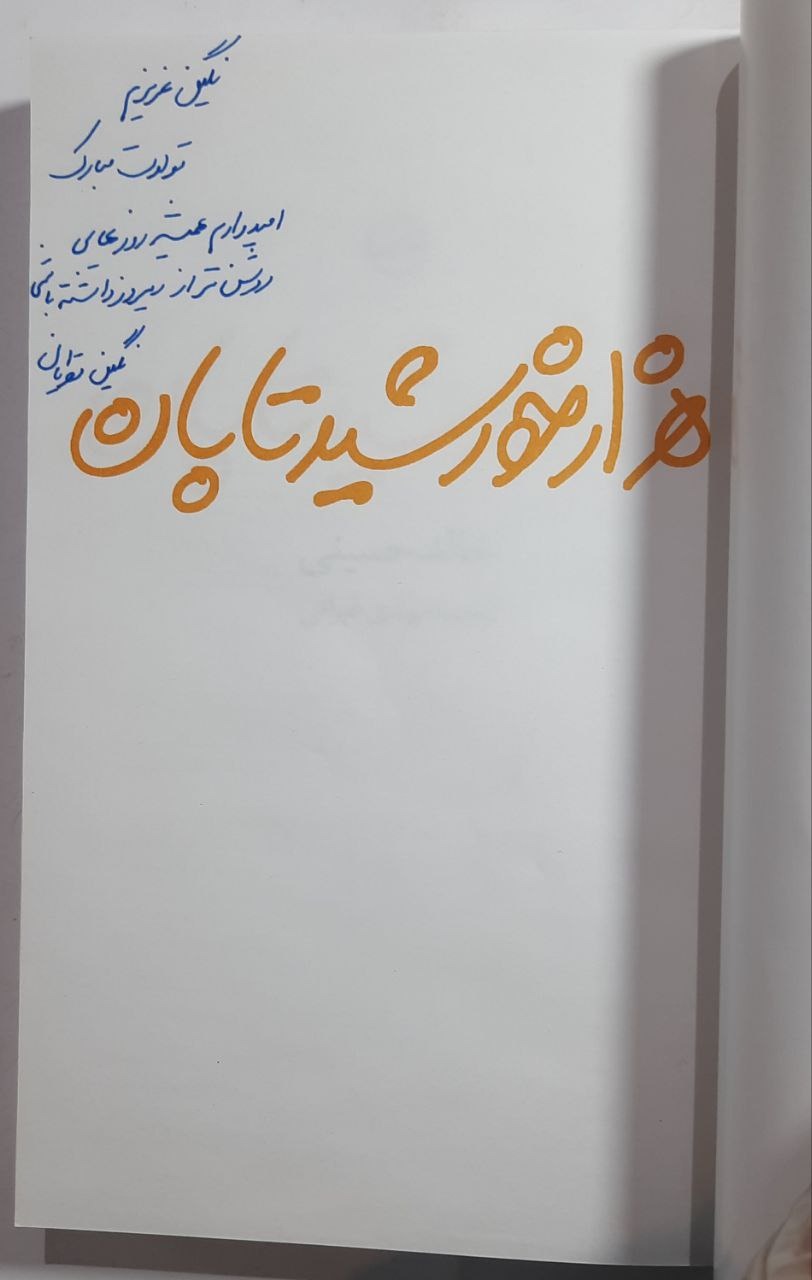 نگین عزیزم
تولدت مبارک
امیدوارم همیشه روزهایی
روشن تر از دیروز داشته باشی
نگین
هزار خورشید تابان